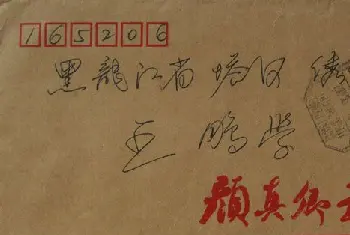 165206
黑龍江省 塔河
王鵬学
顔真卿